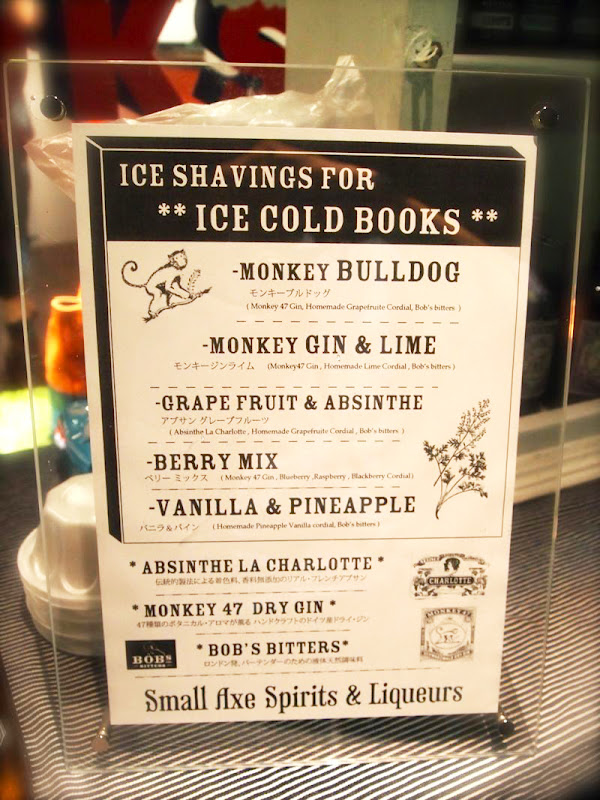 ICE SHAVINGS FOR
** ICE COLD BOOKS **
-MONKEY BULLDOG
モンキーブルドッグ
( Monkey 47 Gin, Homemade Grapefruite Cordial, Bob's bitters )
-MONKEY GIN & LIME
モンキージンライム (Monkey47 Gin , Homemade Lime Cordial , Bob's bitters )
-GRAPE FRUIT & ABSINTHE
アブサン グレープフルーツ
( Absinthe La Charlotte , Homemade Grapefruite Cordial , Bob's bitters )
-BERRY MIX
ベリー ミックス ( Monkey 47 Gin , Blueberry ,Raspberry , Blackberry Cordial)
-VANILLA & PINEAPPLE
バニラ＆パイン ( Homemade Pineapple Vanilla cordial, Bob's bitters )
* ABSINTHE LA CHARLOTTE *
伝統的製法による着色料、香料無添加のリアル・フレンチアブサン
CHARLOTTE
* MONKEY 47 DRY GIN *
47種類のボタニカル・アロマが薫る ハンドクラフトのドイツ産ドライ・ジン
MONKEY 47
BOB'S
BITTERS
* BOB'S BITTERS*
ロンドン発、バーテンダーのための液体天然調味料
Small Axe Spirits & Liqueurs